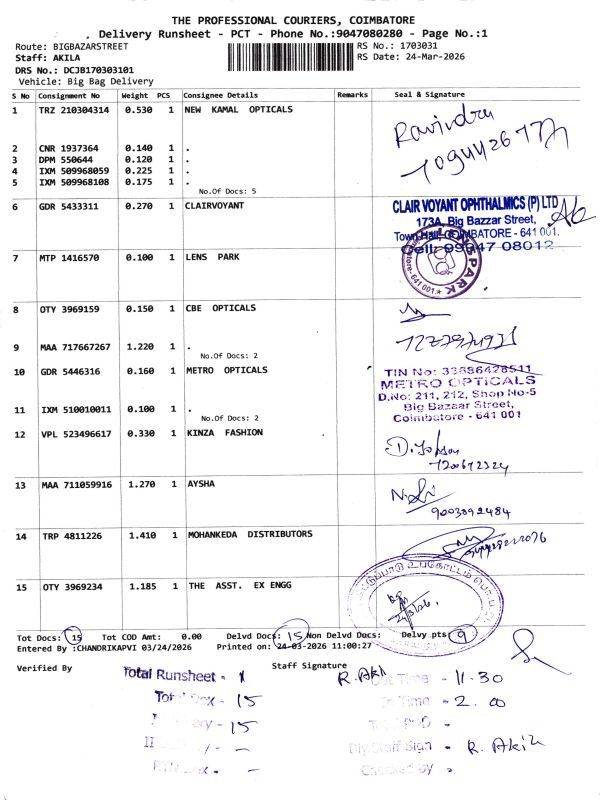 THE PROFESSIONAL COURIERS, COIMBATORE
Delivery Runsheet - PCT - Phone No.:9047080280 - Page No.:1
Route: BIGBAZARSTREET
RS No.: 1703031
Staff: AKILA
RS Date: 24-Mar-2026
DRS No.: DCJB170303101
Vehicle: Big Bag Delivery
S No Consignment No Weight PCS Consignee Details Remarks Seal & Signature
1 TRZ 210304314 0.530 1 NEW KAMAL OPTICALS
Ravindra
2 CNR 1937364 0.140 1 .
3 DPM 550644 0.120 1 .
4 IXM 509968059 0.225 1 .
5 IXM 509968108 0.175 1 .
No.Of Docs: 5
6 GDR 5433311 0.270 1 CLAIRVOYANT
CLAIR VOYANT OPHTHALMICS (P) LTD
173A, Big Bazzar Street,
Town Hall, COIMBATORE - 641 001.
Cell: 09047 08012
7 MTP 1416570 0.100 1 LENS PARK
8 OTY 3969159 0.150 1 CBE OPTICALS
9 MAA 717667267 1.220 1 .
No.Of Docs: 2
10 GDR 5446316 0.160 1 METRO OPTICALS
TIN No: 33686428511
METRO OPTICALS
D.No: 211, 212, Shop No-5
Big Bazaar Street,
Coimbatore - 641 001
11 IXM 510010011 0.100 1 .
No.Of Docs: 2
12 VPL 523496617 0.330 1 KINZA FASHION
13 MAA 711059916 1.270 1 AYSHA
9003092484
14 TRP 4811226 1.410 1 MOHANKEDA DISTRIBUTORS
15 OTY 3969234 1.185 1 THE ASST. EX ENGG
Tot Docs: 15 Tot COD Amt: 0.00 Delvd Docs: 15 Non Delvd Docs: Delvy pts: 9
Entered By :CHANDRIKAPVI 03/24/2026 Printed on: 24-03-2026 11:00:27
Verified By Staff Signature
Total Runsheet - 1
R.Aki
Out Time - 11.30
- 15
In Time - 2.00
- 15
Dly.Staff Sign - R. Akila
Checked by